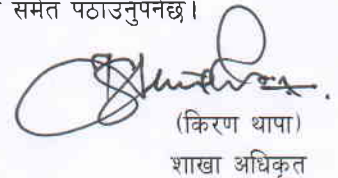 समेत पठाउनुपर्नेछ।
(किरण थापा)
शाखा अधिकृत